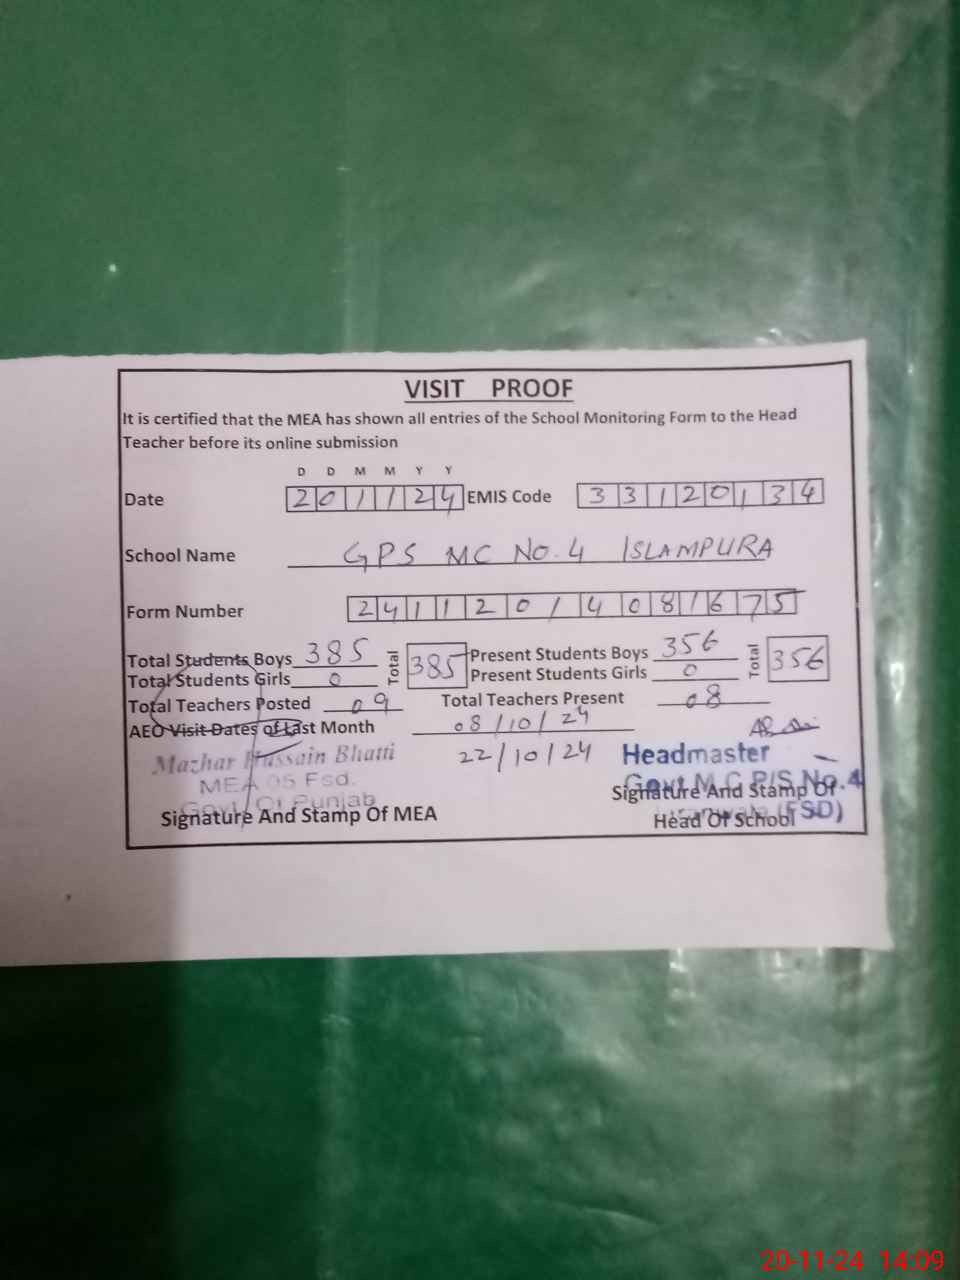 VISIT PROOF
It is certified that the MEA has shown all entries of the School Monitoring Form to the Head
Teacher before its online submission
D D M M Y Y
Date 201124 EMIS Code 33120134
School Name GPS MC No. 4 ISLAMPURA
Form Number 24112014081675
Total Students Boys 385 Total 385 Present Students Boys 356 Total 356
Total Students Girls 0 Present Students Girls 0
Total Teachers Posted 09 Total Teachers Present 08
AEO Visit Dates of Last Month 08/10/24
22/10/24
Mazhar Hussain Bhatti
MEA 05 Fsd.
Govt Of Punjab
Signature And Stamp Of MEA
Headmaster
Govt M.C P/S No.4
(FSD)
Signature And Stamp Of
Head Of School
20-11-24 14:09